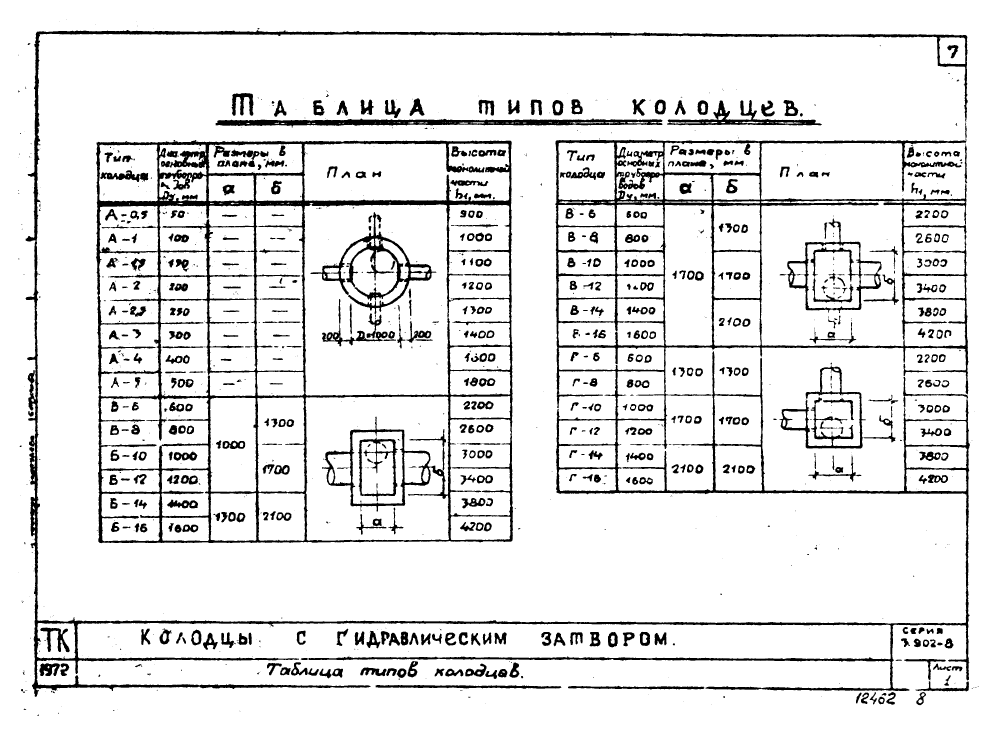 7
Таблица типов колодцев.
Тип колодца | Диаметр основных трубопроводов Dу, мм | Размеры в плане, мм. | План | Высота монолитной части h1, мм.
а | б
А-0,5 | 50 | — | — | 900
А-1 | 100 | — | — | 1000
А-1,5 | 150 | — | — | 1100
А-2 | 200 | — | — | 1200
А-2,5 | 250 | — | — | 1300
А-3 | 300 | — | — | 1400
А-4 | 400 | — | — | 1600
А-5 | 500 | — | — | 1800
200 D=1000 200
Б-6 | 600 | 1000 | 1300 | 2200
Б-8 | 800 | 2600
Б-10 | 1000 | 1700 | 3000
Б-12 | 1200 | 3400
Б-14 | 1400 | 1300 | 2100 | 3800
Б-16 | 1600 | 4200
б
а
Тип колодца | Диаметр основных трубопроводов Dу, мм. | Размеры в плане, мм. | План | Высота монолитной части h1, мм.
а | б
В-6 | 600 | 1700 | 1300 | 2200
В-8 | 800 | 2600
В-10 | 1000 | 1700 | 3000
В-12 | 1200 | 3400
В-14 | 1400 | 2100 | 3800
В-16 | 1600 | 4200
б
а
Г-6 | 600 | 1300 | 1300 | 2200
Г-8 | 800 | 2600
Г-10 | 1000 | 1700 | 1700 | 3000
Г-12 | 1200 | 3400
Г-14 | 1400 | 2100 | 2100 | 3800
Г-16 | 1600 | 4200
б
а
ТК Колодцы с гидравлическим затвором. Серия 3.902-8
1972 Таблица типов колодцев. Лист 1
12462 8